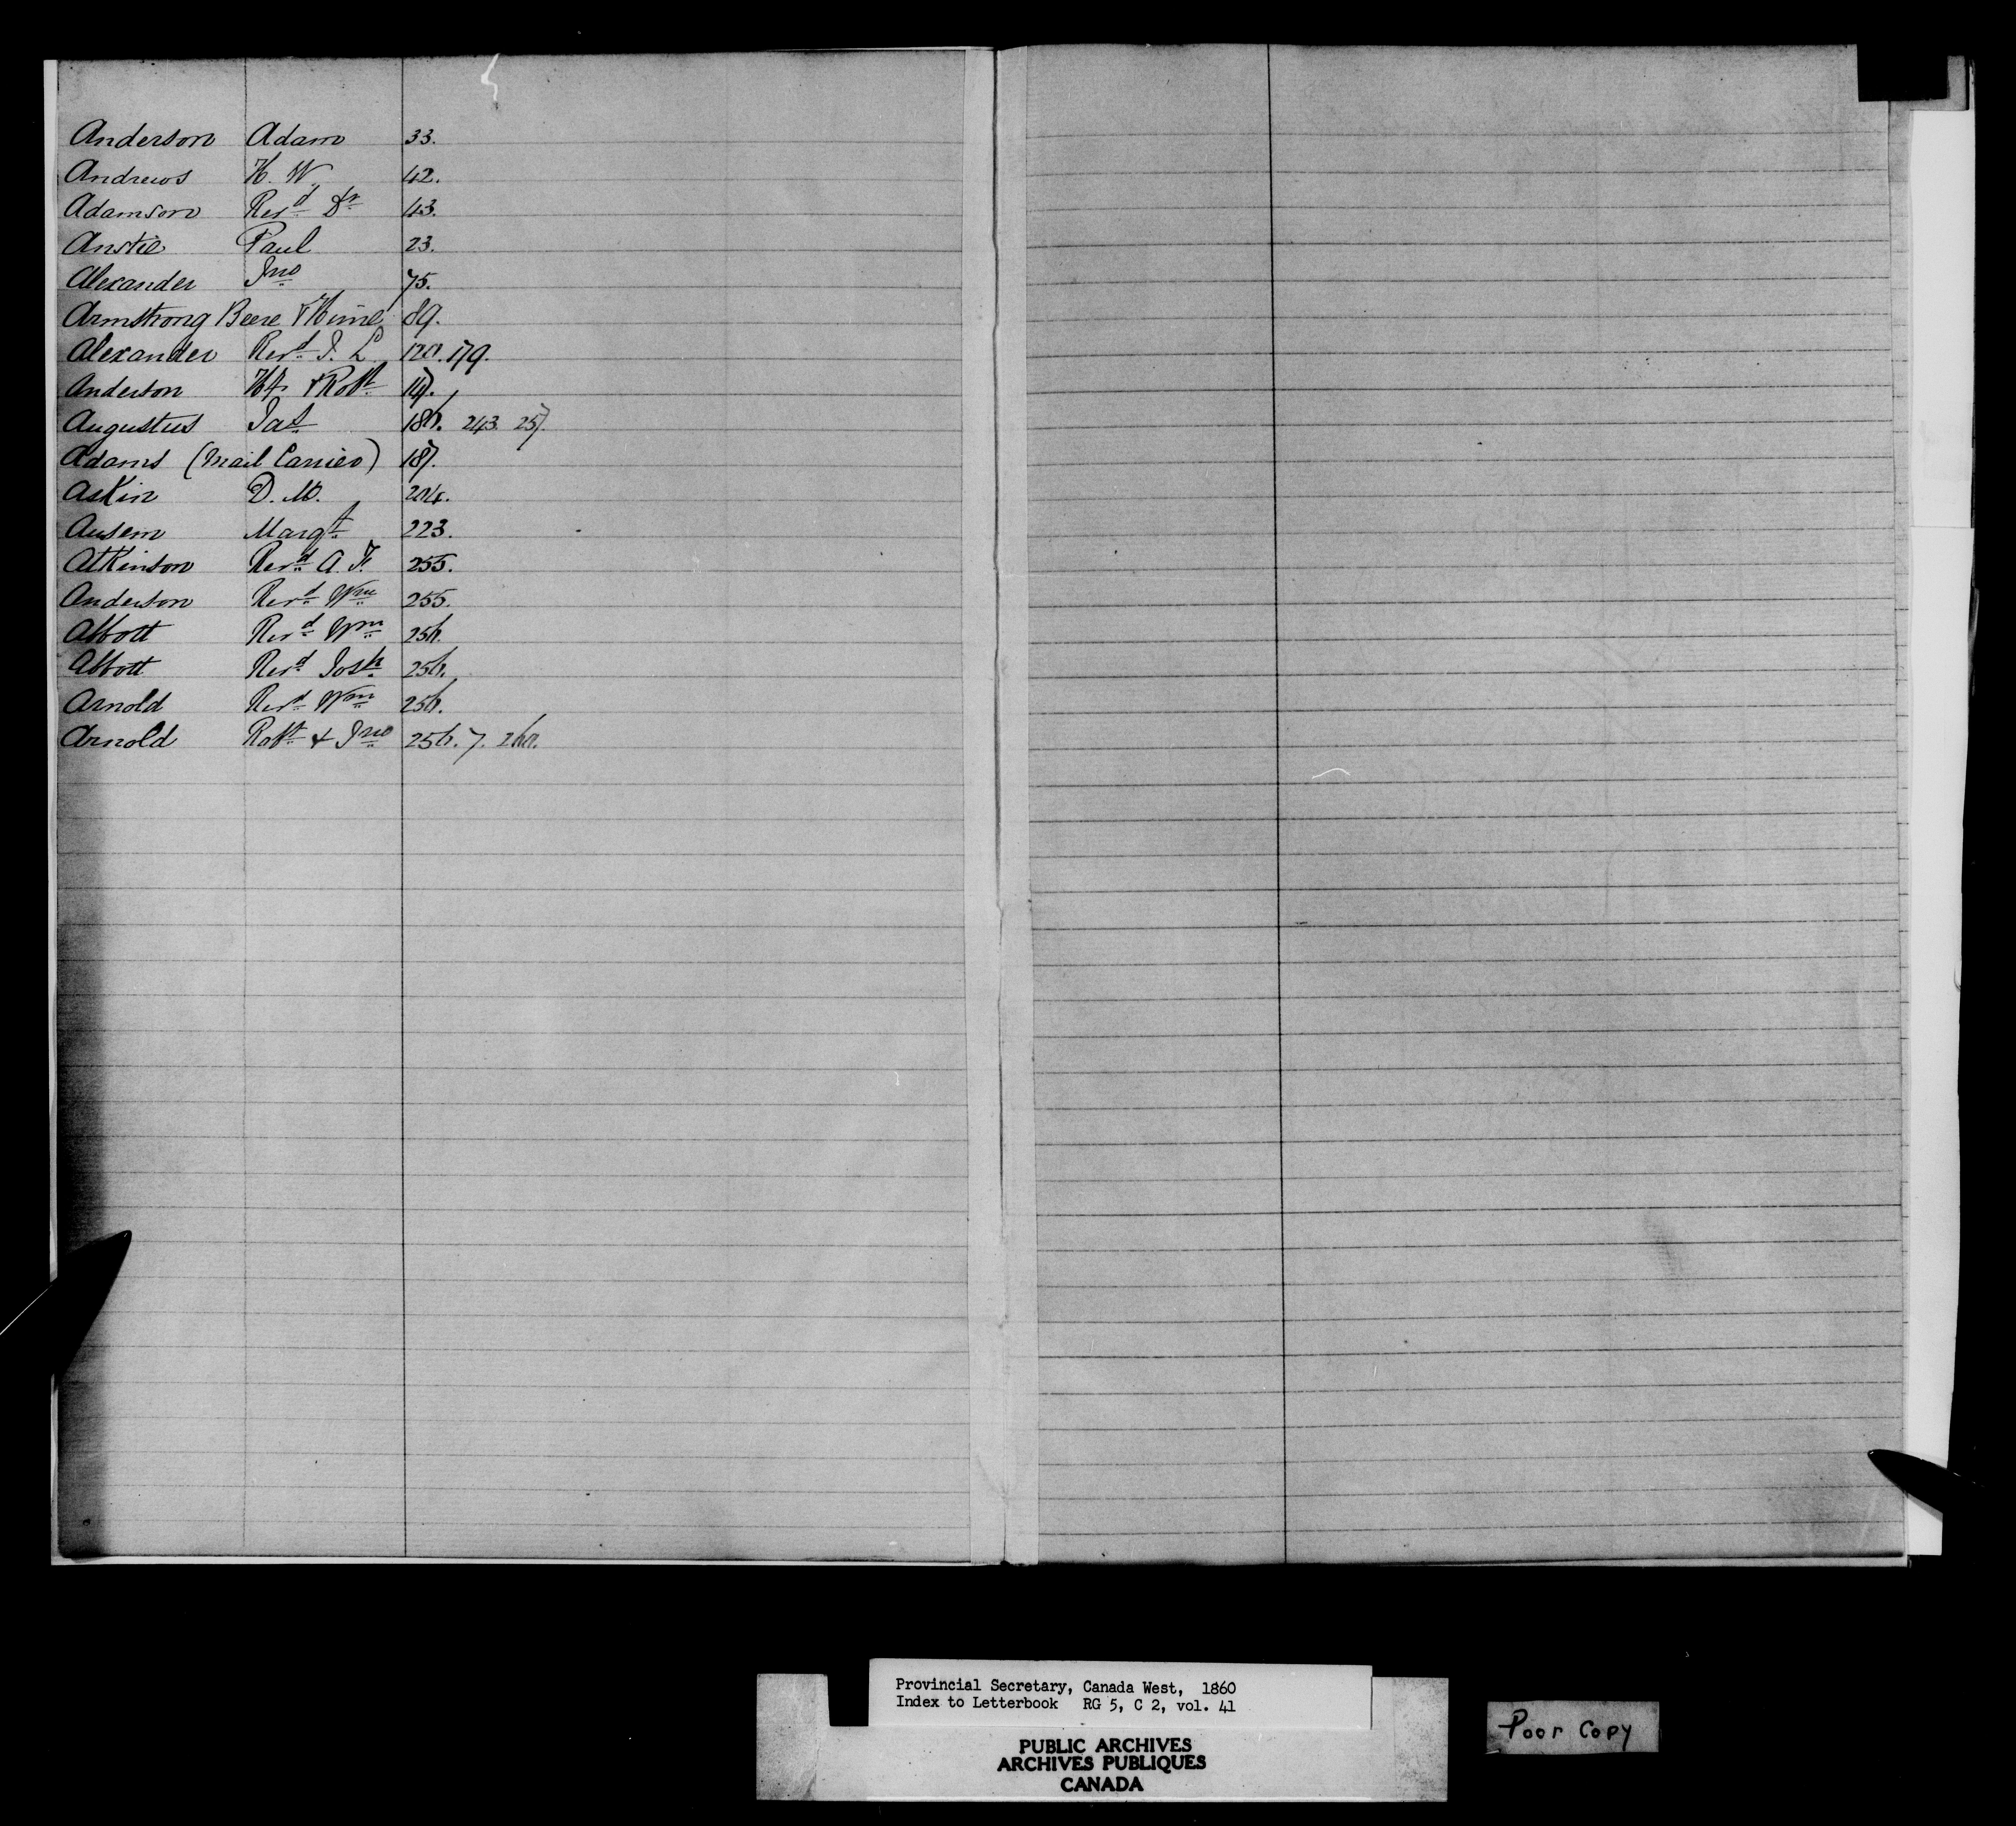 Anderson Adam 33.
Andrews H. W. 42.
Adamson Revd Dr 43.
Anstie Paul 23.
Alexander Jno 75.
Armstrong Beere & Hime 89.
Alexander Revd J. L. 120. 179.
Anderson & Robt 147.
Augustus Jas 186. 243. 257.
Adams (Mail Carrier) 187.
Askin D. M. 204.
Ausem Margt 223.
Atkinson Revd A. F. 255.
Anderson Revd Wm 255.
Abbott Revd Wm 256.
Abbott Revd Josh 256.
Arnold Revd Wm 256.
Arnold Robt & Jno 256. 7. 260.
Provincial Secretary, Canada West, 1860
Index to Letterbook RG 5, C 2, vol. 41
PUBLIC ARCHIVES
ARCHIVES PUBLIQUES
CANADA
Poor Copy